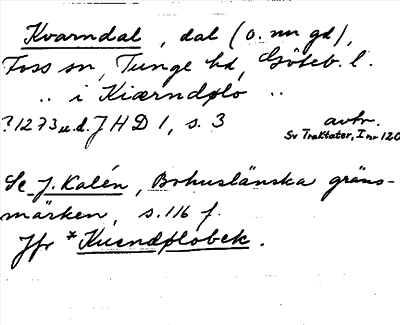 Kvarndal, dal (o. nu gd),
Foss sn, Tunge hd, Göteb. l.
„ i Kiærndplo „
? 1273 u.d. JHD 1, s. 3 avtr.
Sv Traktater, I nr 120
Se J. Kalén, Bohuslänska gräns-
märken, s. 116 f.
Jfr *Kuendplobek.